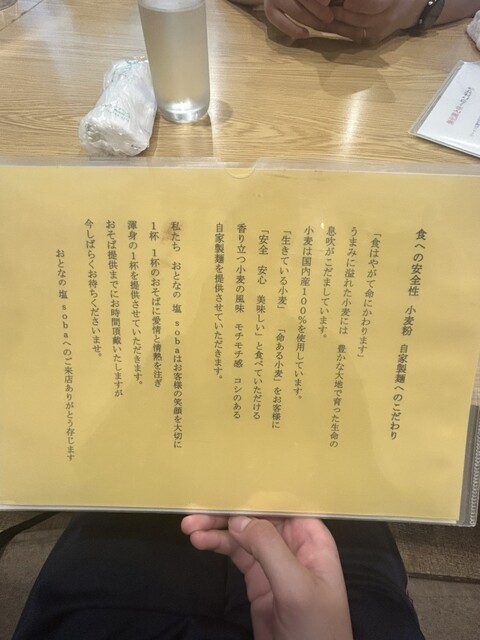 食への安全性　小麦粉　自家製麺へのこだわり
「食はやがて命にかわります」
うまみに溢れた小麦には　豊かな大地で育った生命の
息吹がこだましています。
小麦は国内産100％を使用しています。
「生きている小麦」　「命ある小麦」をお客様に
「安全　安心　美味しい」と食べていただける
香り立つ小麦の風味　モチモチ感　コシのある
自家製麺を提供させていただきます。
私たち　おとなの塩　sobaはお客様の笑顔を大切に
1杯　1杯のおそばに愛情と情熱を注ぎ
渾身の1杯を提供させていただきます。
おそば提供までにお時間頂戴いたしますが
今しばらくお待ちくださいませ。
おとなの塩　sobaへのご来店ありがとう存じます